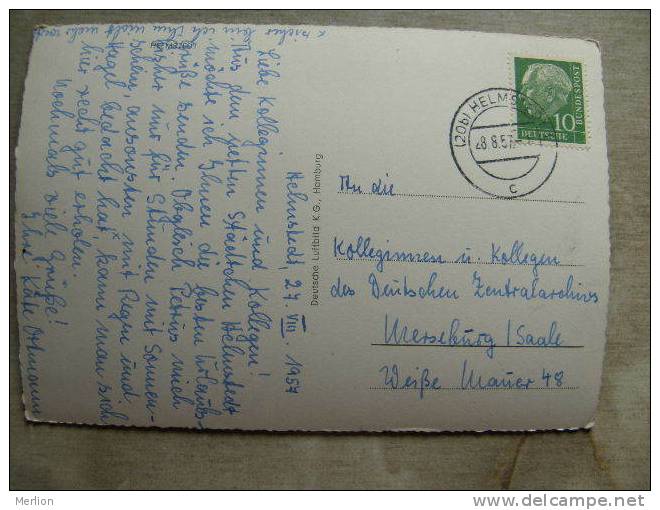 Helmstedt, 27. VIII. 1957
Liebe Kolleginnen und Kollegen!
Aus dem netten Städtchen Helmstedt
möchte ich Ihnen die besten Urlaubs-
grüße senden. Obgleich Petrus mich
bisher nur für Stunden mit Sonnen-
schein, ansonsten mit Regen und
Hagel bedacht hat, kann man sich
hier recht gut erholen.
Nochmals viele Grüße!
Ihre Käte Ortmann
Deutsche Luftbild K.G., Hamburg
(20b) HELMS
28.8.57
c
10
DEUTSCHE
BUNDESPOST
An die
Kolleginnen u. Kollegen
des Deutschen Zentralarchivs
Merseburg/Saale
Weiße Mauer 48
Merlion
www.delcampe.net